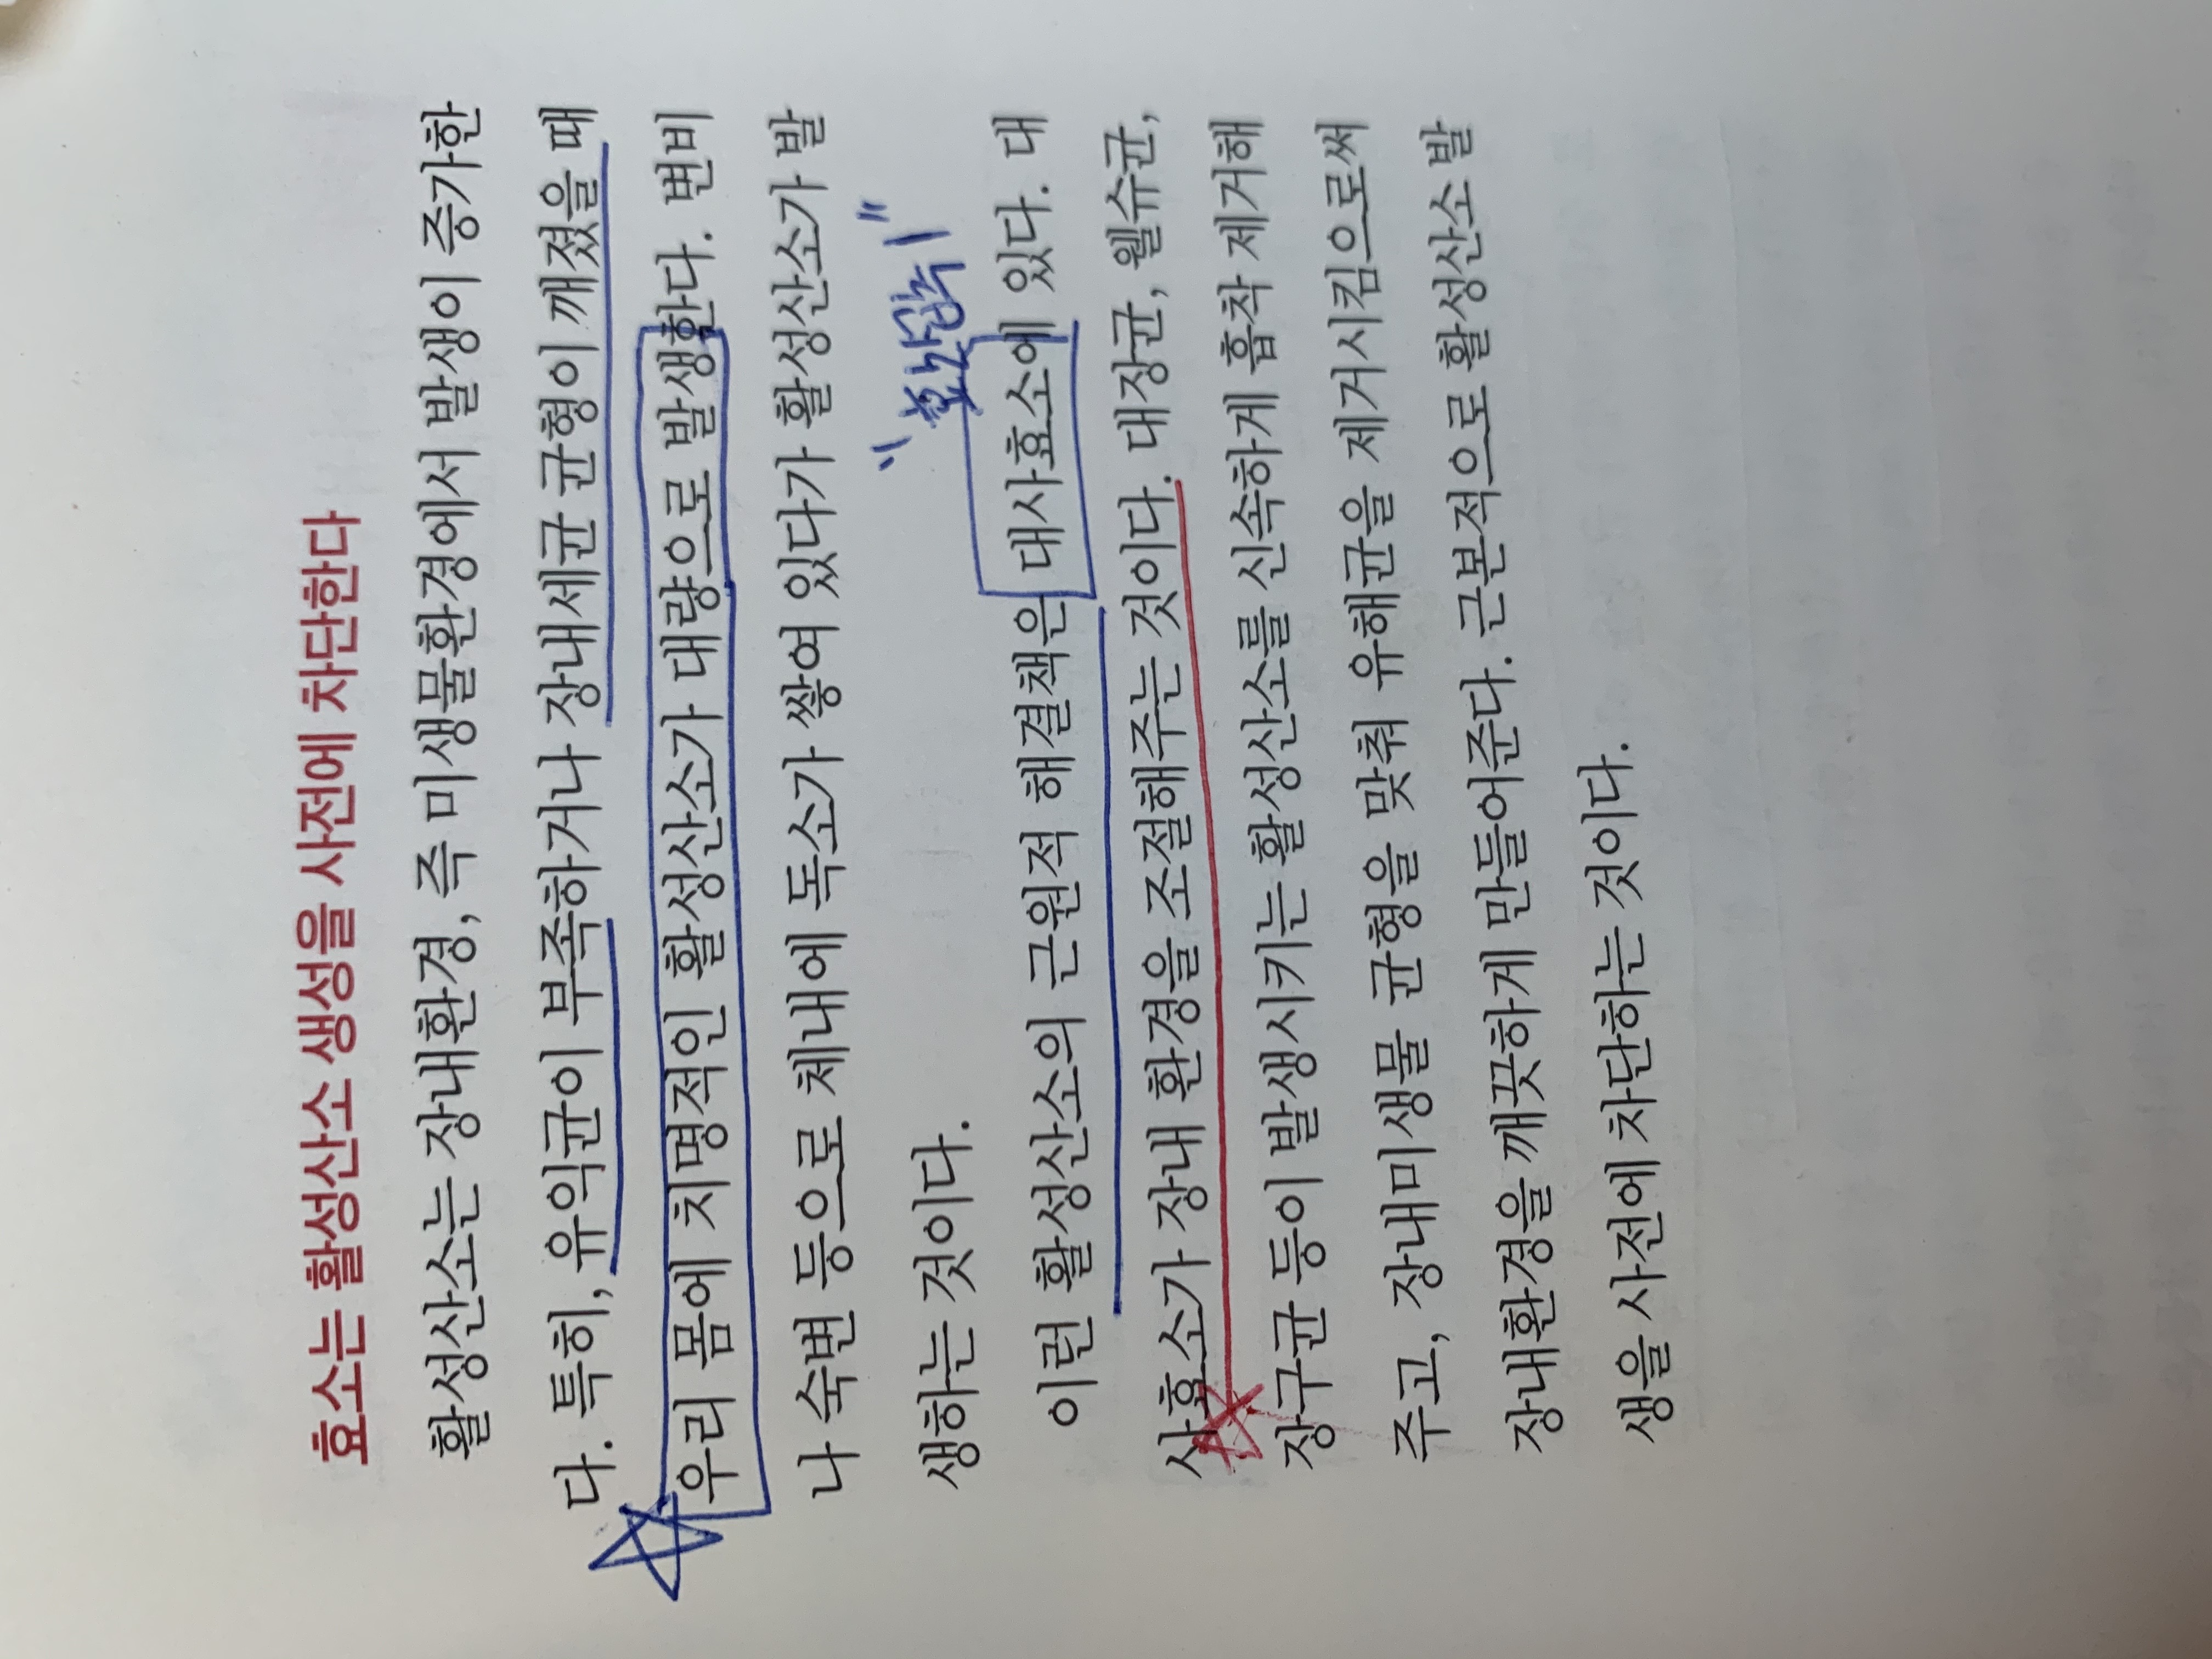 효소는 활성산소 생성을 사전에 차단한다
활성산소는 장내환경, 즉 미생물환경에서 발생이 증가한
다. 특히, 유익균이 부족하거나 장내세균 균형이 깨졌을 때
우리 몸에 치명적인 활성산소가 대량으로 발생한다. 변비
나 숙변 등으로 체내에 독소가 쌓여 있다가 활성산소가 발
생하는 것이다.
이런 활성산소의 근원적 해결책은 대사효소에 있다. 대
사효소가 장내 환경을 조절해주는 것이다. 대장균, 웰슈균,
장구균 등이 발생시키는 활성산소를 신속하게 흡착 제거해
주고, 장내미생물 균형을 맞춰 유해균을 제거시킴으로써
장내환경을 깨끗하게 만들어준다. 근본적으로 활성산소 발
생을 사전에 차단하는 것이다.